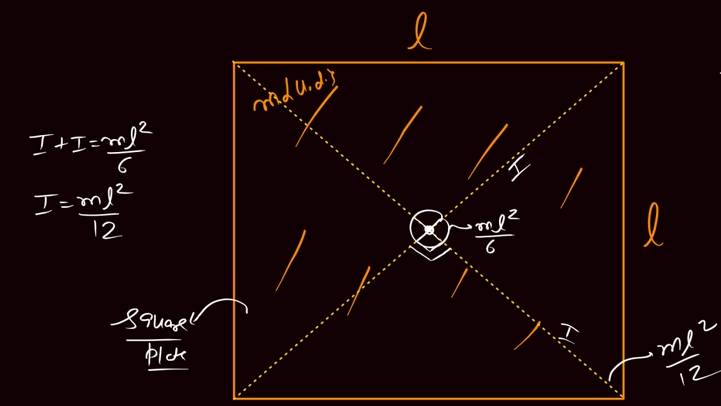 l
m,d u.d.s
I + I = ml²/6
I = ml²/12
I
ml²/6
l
square
plate
I
ml²/12